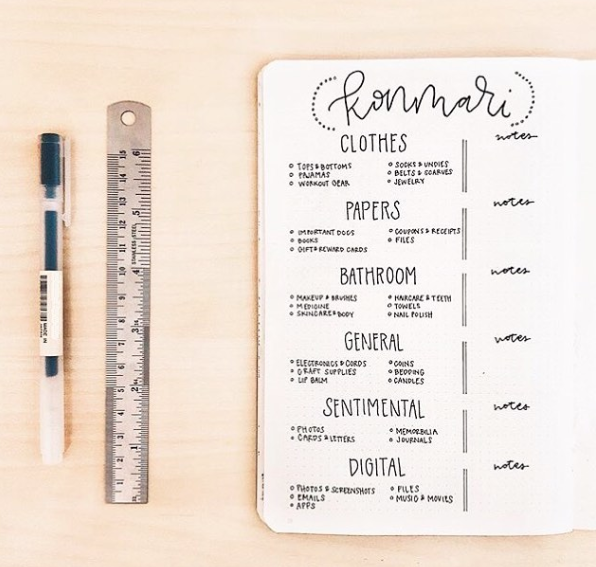 konmari
CLOTHES
notes
TOPS & BOTTOMS
PAJAMAS
WORKOUT GEAR
SOCKS & UNDIES
BELTS & SCARVES
JEWELRY
PAPERS
notes
IMPORTANT DOCS
BOOKS
GIFT & REWARD CARDS
COUPONS & RECEIPTS
FILES
BATHROOM
notes
MAKEUP & BRUSHES
MEDICINE
SKINCARE & BODY
HAIRCARE & TEETH
TOWELS
NAIL POLISH
GENERAL
notes
ELECTRONICS & CORDS
CRAFT SUPPLIES
LIP BALM
COINS
BEDDING
CANDLES
SENTIMENTAL
notes
PHOTOS
CARDS & LETTERS
MEMORBILIA
JOURNALS
DIGITAL
notes
PHOTOS & SCREENSHOTS
EMAILS
APPS
FILES
MUSIC & MOVIES
STAINLESS STEEL
15
14
13
12
11
10
9
8
7
6
5
4
3
2
1
6
5
4
3
2
1